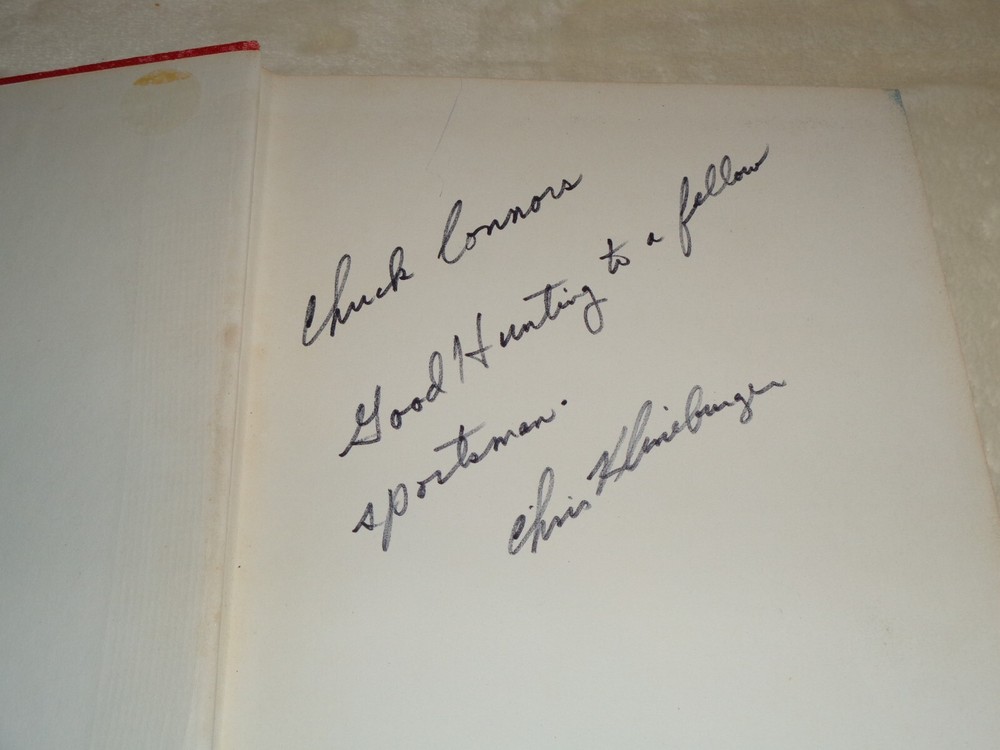 Chuck Connors
Good Hunting to a fellow
sportsman.
Chris Klineburger